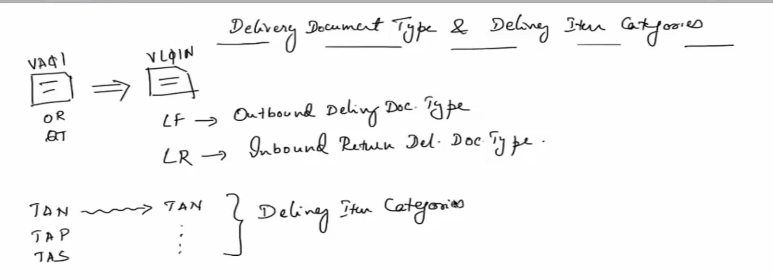 Delivery Document Type & Delivery Item Categories
VA01 VL01N
OR LF → Outbound Delivery Doc. Type
QT LR → Inbound Return Del. Doc. Type.
TAN → TAN } Delivery Item Categories
TAP
TAS